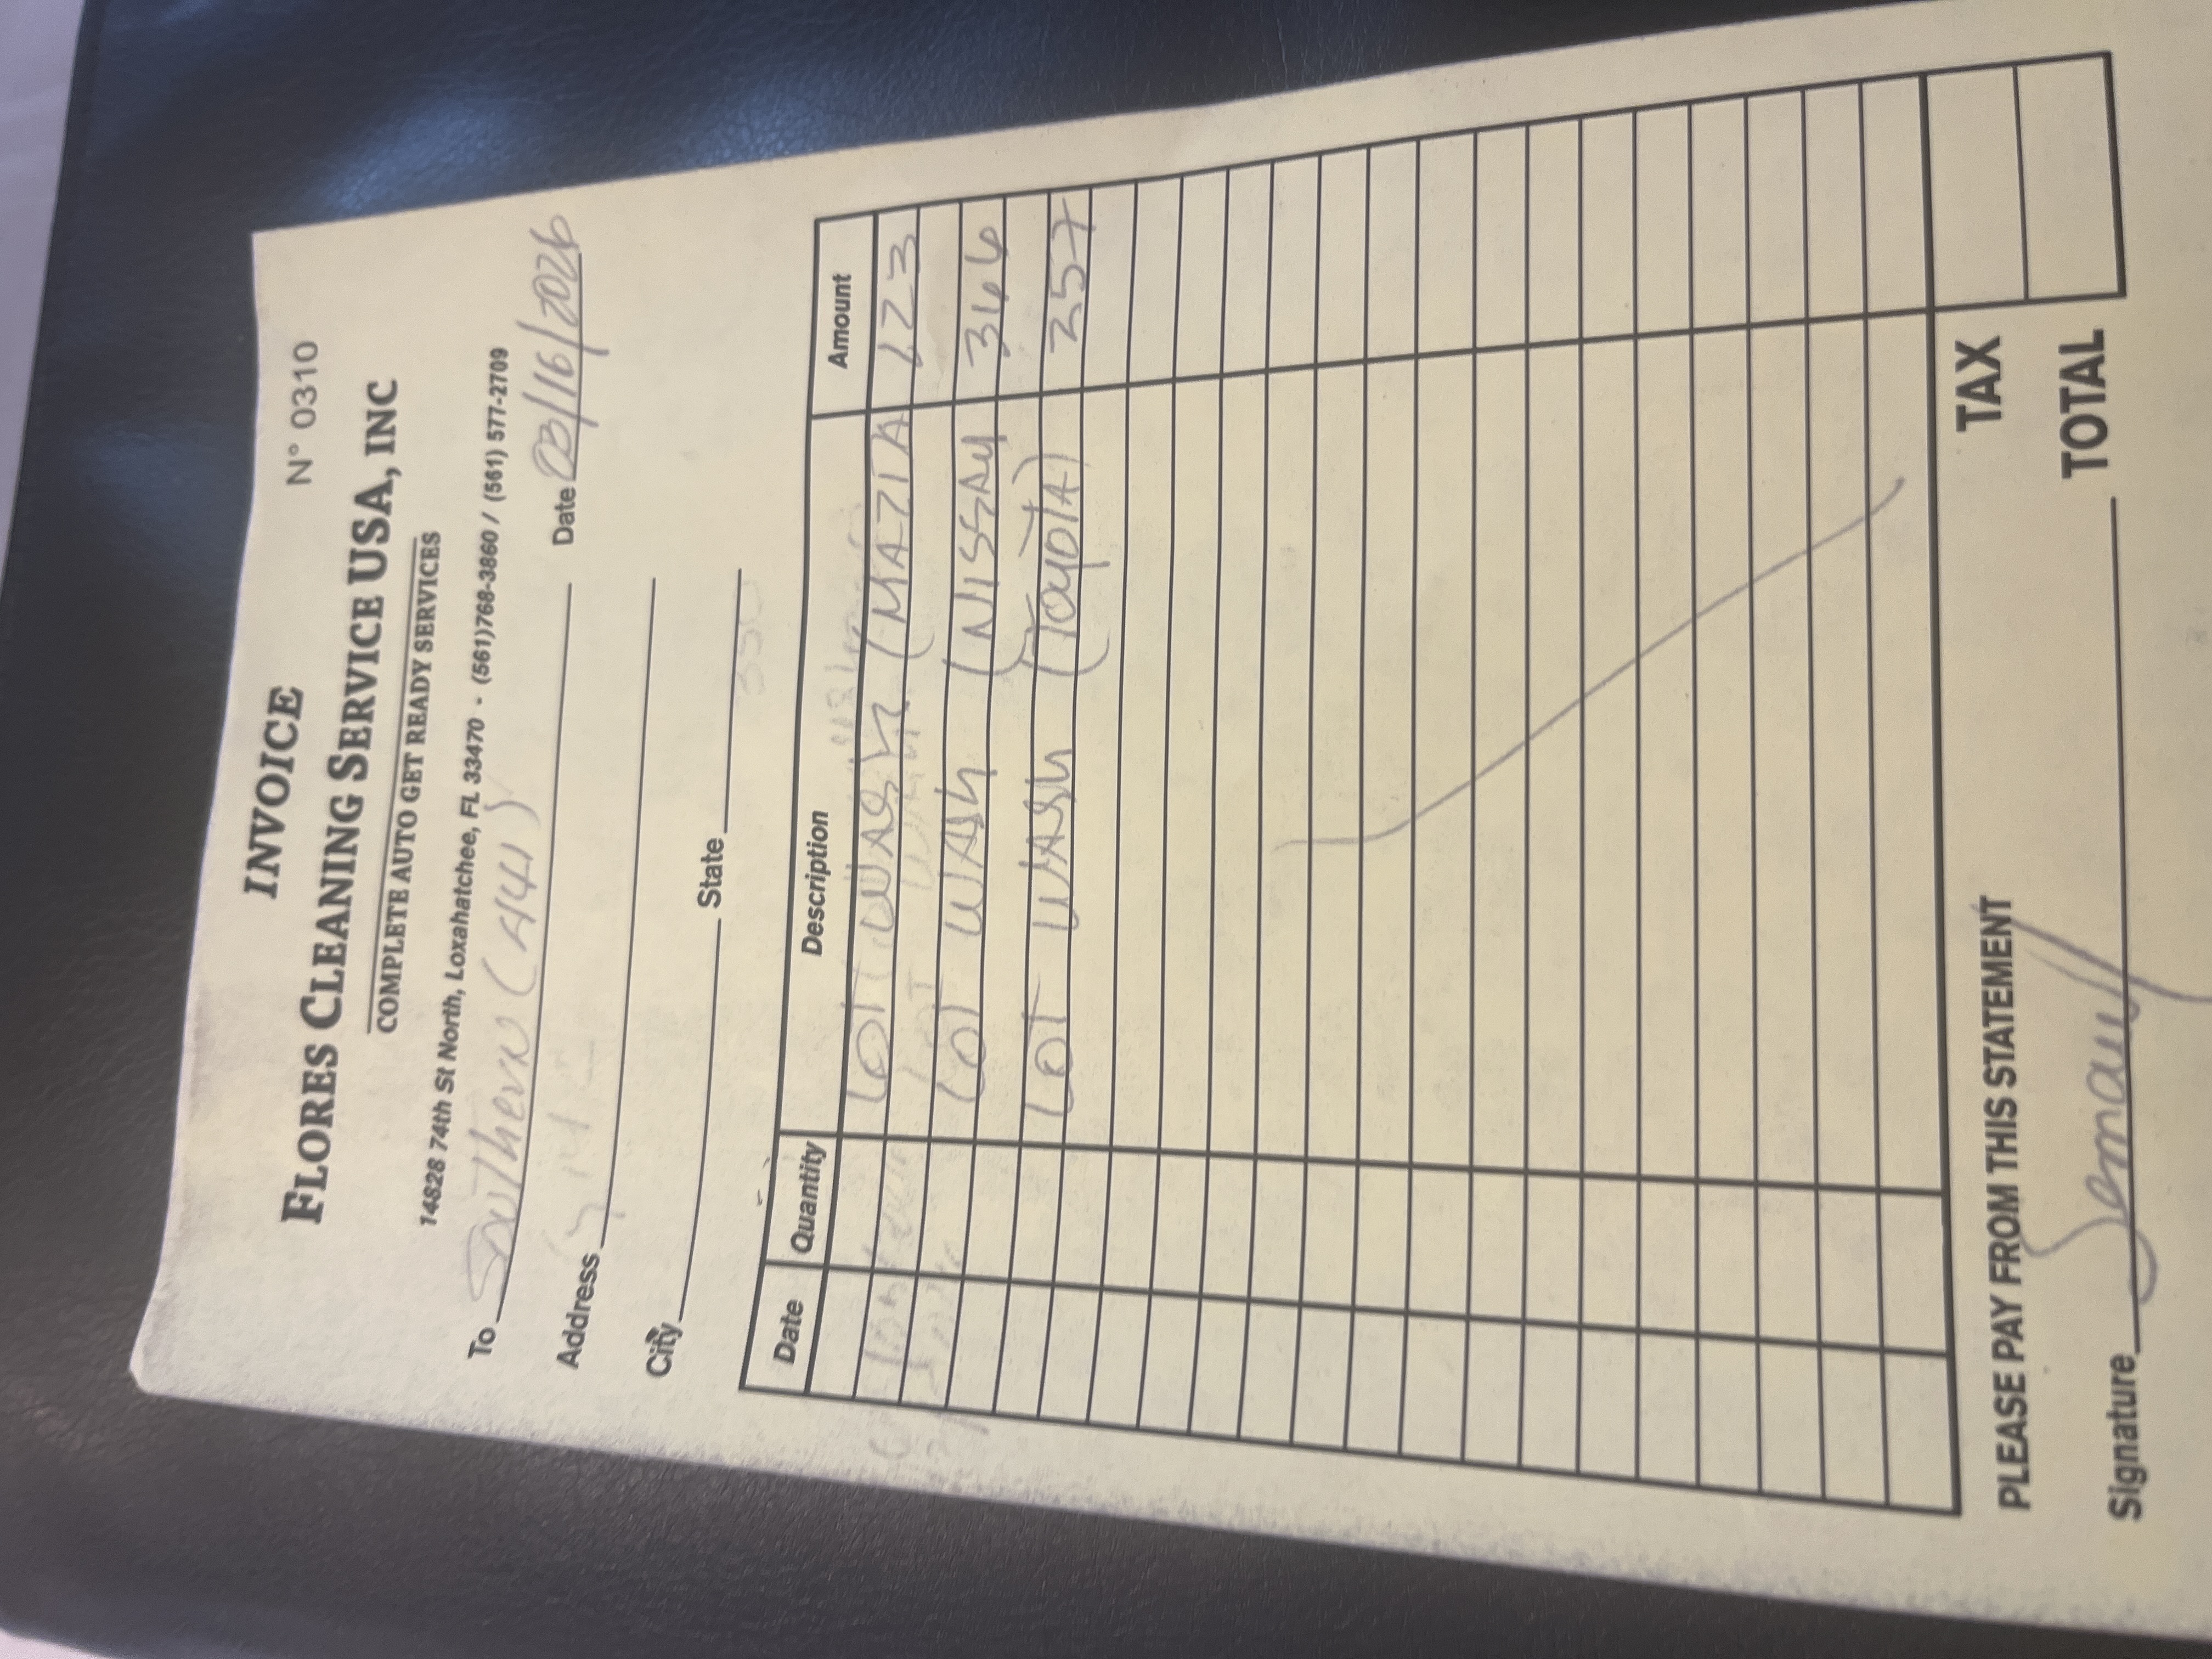 INVOICE
N° 0310
FLORES CLEANING SERVICE USA, INC
COMPLETE AUTO GET READY SERVICES
14828 74th St North, Loxahatchee, FL 33470 - (561)768-3860 / (561) 577-2709
To Southern (441) Date 03/16/2026
Address
City State
Date Quantity Description Amount
LOT WASH (MAZDA 123
LOT WASH (NISSAN 346
LOT WASH (TOYOTA) 357
TAX
PLEASE PAY FROM THIS STATEMENT
TOTAL
Signature